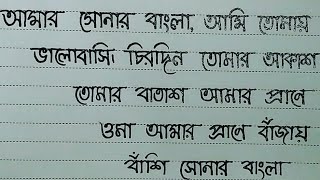 আমার সোনার বাংলা, আমি তোমায়
ভালোবাসি। চিরদিন তোমার আকাশ
তোমার বাতাশ আমার প্রানে
ওমা আমার প্রানে বাঁজায়
বাঁশি সোনার বাংলা